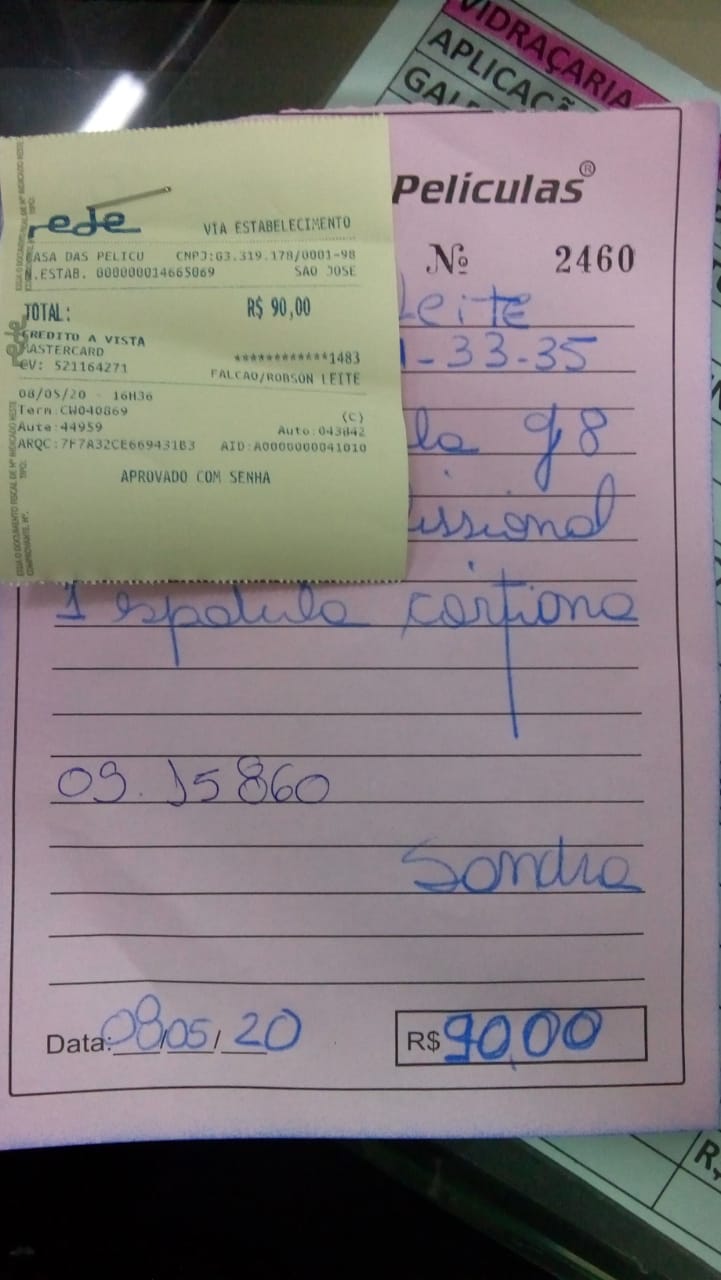 VIDRAÇARIA
APLICAÇÃ
Películas®
Nº 2460
rede
VIA ESTABELECIMENTO
CASA DAS PELICU CNPJ:03.319.178/0001-98
N.ESTAB. 000000014665069 SAO JOSE
TOTAL: R$ 90,00
CREDITO A VISTA
MASTERCARD ************1483
CV: 521164271 FALCAO/ROBSON LEITE
08/05/20 - 16H36
Term:CW040869 (C)
Aute:44959 Auto:043842
ARQC:7F7A32CE669431B3 AID:A0000000041010
APROVADO COM SENHA
Leite
-33-35
la g8
issional
1 espatula
09.15860
Sandra
Data: 08/05/20 R$ 90,00
R$